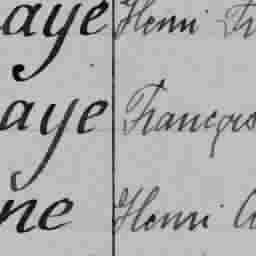 aye Henri Fr
aye François
ne Henri A